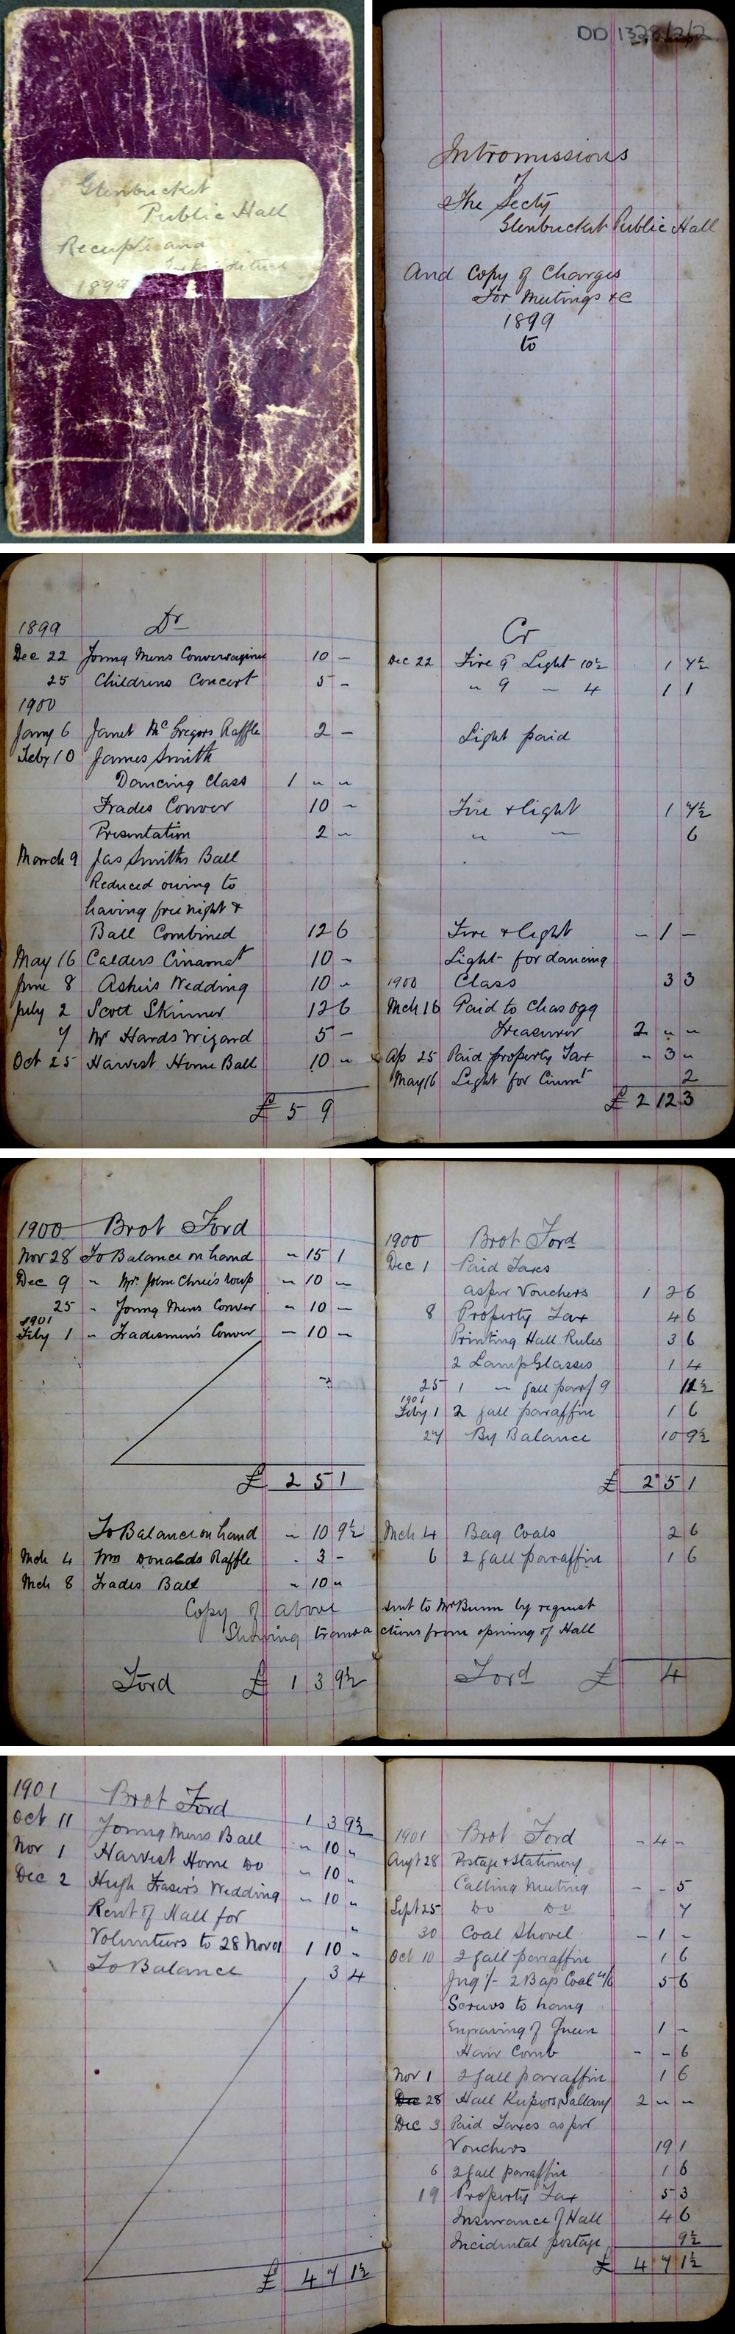 Glenbucket
Public Hall
Receipts and
1899
DD 1328/2/2
Intromissions
of
The Secty
Glenbucket Public Hall
And Copy of Charges
For Meetings &c
1899
to
1899 Dr
Dec 22 Young Mens Conversazione 10 -
25 Childrens Concert 5 -
1900
Jany 6 Janet McGregors Raffle 2 -
Feby 10 James Smith
Dancing Class 1 " "
Trades Conver 10 -
Presentation 2 -
March 9 Jas Smiths Ball
Reduced owing to
having free night &
Ball Combined 12 6
May 16 Calders Cinamat 10 -
June 8 Askins Wedding 10 "
July 2 Scott Skinner 12 6
7 Mr Hards Wizard 5 -
Oct 25 Harvest Home Ball 10 "
£ 5 9
Cr
Dec 22 Fire & Light 10½ 1 7½
" 9 - 4 1 1
Light paid
Fire & Light 1 7½
" - 6
Fire & Light - 1 -
Light for dancing
1900 Class 3 3
Mch 16 Paid to Chas Ogg
Treasurer 2 " "
Ap 25 Paid property Tax - 3 "
May 16 Light for Cinmt 2
£ 2 12 3
1900 Brot Ford
Nov 28 To Balance on hand " 15 1
Dec 9 " Mr John Chree's roup - 10 -
25 " Young Mens Conver - 10 -
1901
Feby 1 " Tradesmen's Conver - 10 -
£ 2 5 1
To Balance on hand - 10 9½
Mch 4 Mrs Donalds Raffle - 3 -
Mch 8 Trades Ball " 10 "
Copy of above sent to Mr Bunn by request
Showing transactions from opening of Hall
Ford £ 1 3 9½
1900 Brot Ford
Dec 1 Paid Taxes
as per Vouchers 1 2 6
8 Property Tax 4 6
Printing Hall Rules 3 6
2 Lamp Glasses 1 4
25 1 " gall paraf 9 11½
1901
Feby 1 2 gall paraffin 1 6
27 By Balance 10 9½
£ 2 5 1
Mch 4 Bag Coals 2 6
6 2 gall paraffin 1 6
Ford £ 4
1901 Brot Ford 1 3 9½
Oct 11 Young Mens Ball " 10 "
Nov 1 Harvest Home Do " 10 "
Dec 2 Hugh Fraser's Wedding " 10 "
Rent of Hall for "
Volunteers to 28 Nov 01 1 10 "
To Balance 3 4
£ 4 7 1½
1901 Brot Ford - 4 -
Augt 28 Postage & Stationery
Calling Meeting - - 5
Sept 25 Do Do 7
30 Coal Shovel - 1 -
Oct 10 2 gall paraffin 1 6
Jug 1/- 2 Bags Coal 4/6 5 6
Screws to hang
Engraving of Queen 1 -
Hair Comb - - 6
Nov 1 2 gall paraffin 1 6
28 Hall Keepers Sallary 2 " "
Dec 3 Paid Taxes as per
Vouchers 19 1
6 2 gall paraffin 1 6
19 Property Tax 5 3
Insurance of Hall 4 6
Incidental postage 9½
£ 4 7 1½